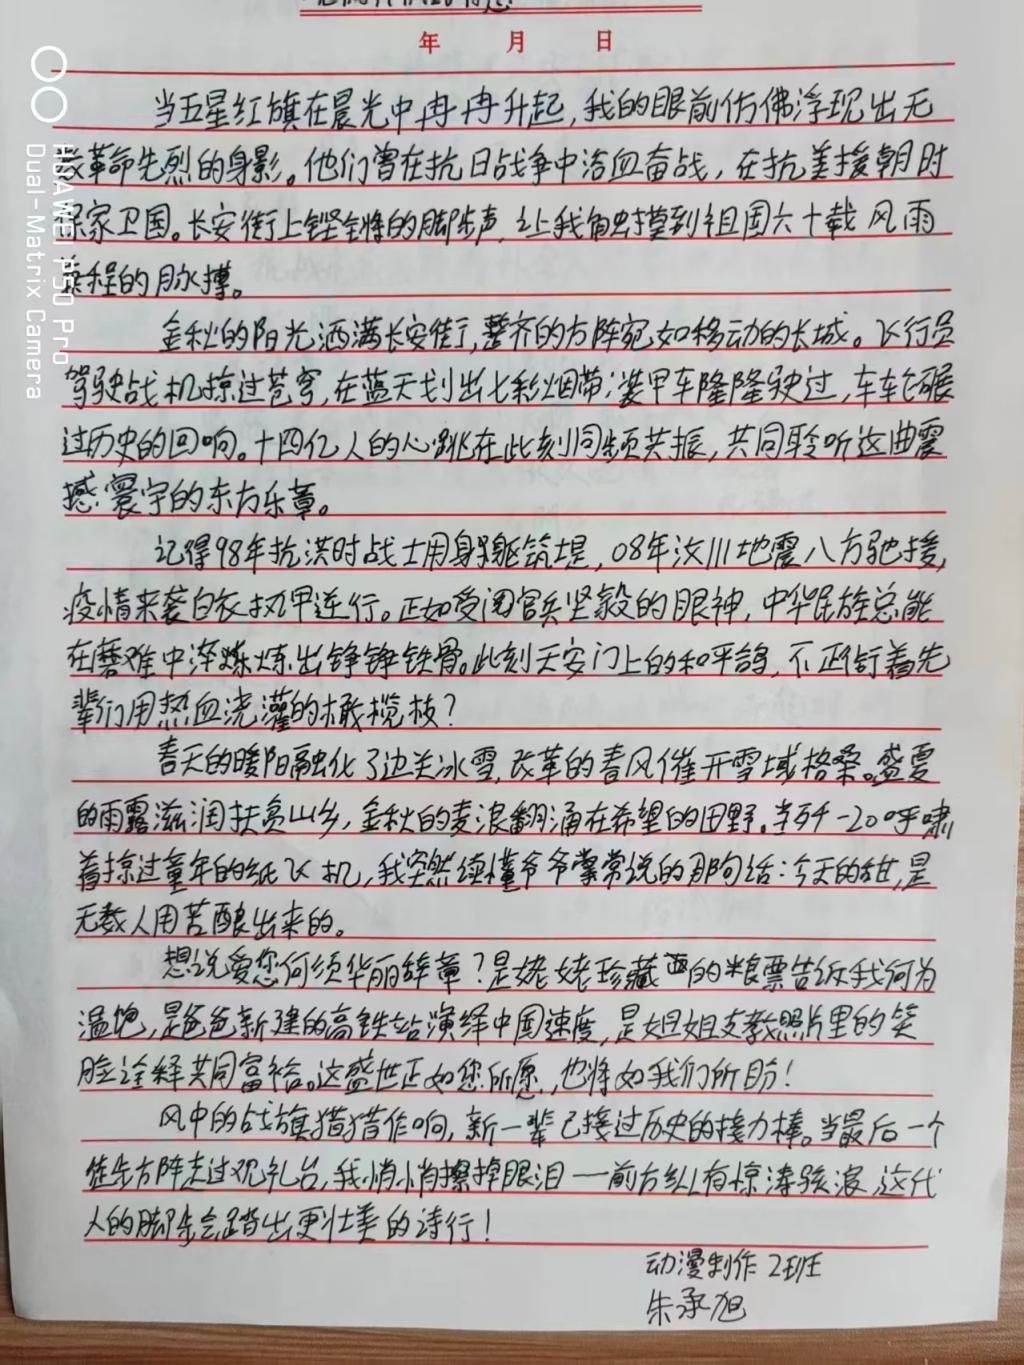 年 月 日
当五星红旗在晨光中冉冉升起，我的眼前仿佛浮现出无
数革命先烈的身影。他们曾在抗日战争中浴血奋战，在抗美援朝时
保家卫国。长安街上铿锵的脚步声，让我触摸到祖国六十载风雨
兼程的脉搏。
金秋的阳光洒满长安街，整齐的方阵宛如移动的长城。飞行员
驾驶战机掠过苍穹，在蓝天划出七彩烟带；装甲车隆隆驶过，车轮碾
过历史的回响。十四亿人的心跳在此刻同频共振，共同聆听这曲震
撼寰宇的东方乐章。
记得98年抗洪时战士用身躯筑堤，08年汶川地震八方驰援，
疫情来袭白衣执甲逆行。正如受阅官兵坚毅的眼神，中华民族总能
在磨难中淬炼出铮铮铁骨。此刻天安门上的和平鸽，不正衔着先
辈们用热血浇灌的橄榄枝？
春天的暖阳融化了边关冰雪，改革的春风催开雪域格桑。盛夏
的雨露滋润扶贫山乡，金秋的麦浪翻涌在希望的田野。当歼-20呼啸
着掠过童年的纸飞机，我突然读懂爷爷常说的那句话：今天的甜，是
无数人用苦酿出来的。
想说爱您何须华丽辞章？是姥姥珍藏的粮票告诉我何为
温饱，是爸爸新建的高铁站演绎中国速度，是姐姐支教照片里的笑
脸诠释共同富裕。这盛世正如您所愿，也将如我们所盼！
风中的战旗猎猎作响，新一辈已接过历史的接力棒。当最后一个
徒步方阵走过观礼台，我悄悄擦掉眼泪——前方纵有惊涛骇浪，这代
人的脚步会踏出更壮美的诗行！
动漫制作2班
朱承旭
HUAWEI P50 Pro
Dual-Matrix Camera